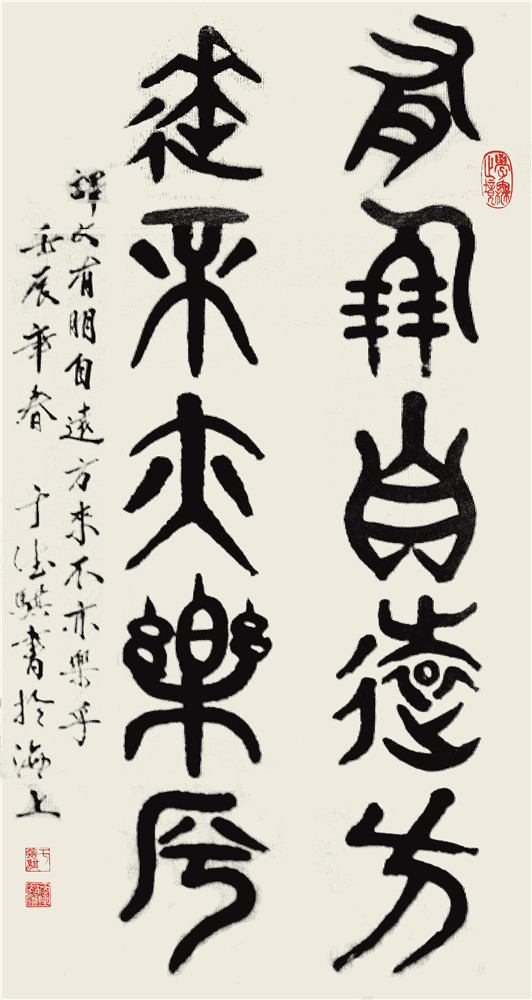 有朋自遠方
來不亦樂乎
譯文有朋自遠方来不亦樂乎
壬辰年春 于騏書於海上